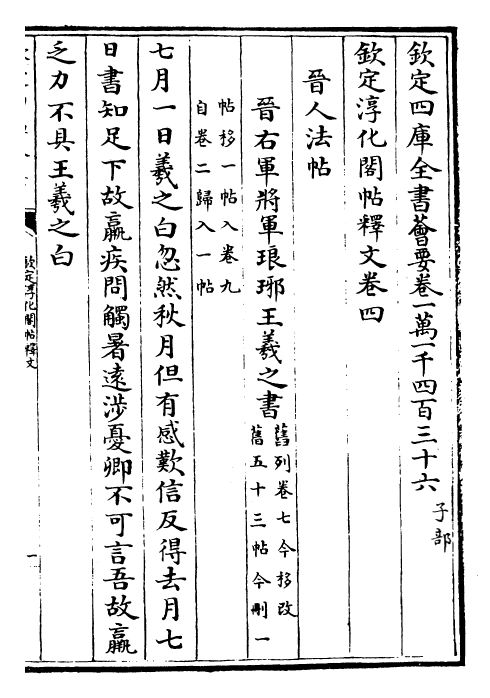 欽定四庫全書薈要卷一萬一千四百三十六子部
欽定淳化閣帖釋文卷四
晉人法帖
晉右軍將軍琅琊王羲之書舊列卷七今移改
舊五十三帖今刪一
帖移一帖入卷九
自卷二歸入一帖
七月一日羲之白忽然秋月但有感歎信反得去月七
日書知足下故羸疾問觸暑遠涉憂卿不可言吾故羸
乏力不具王羲之白
欽定淳化閣帖釋文
一